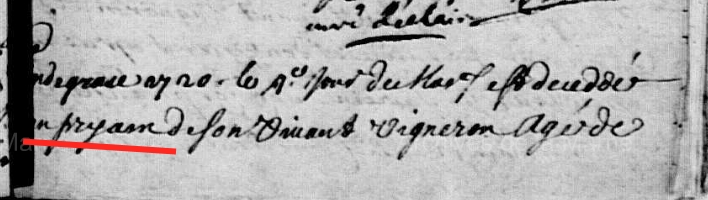 curé
de grace 1720 le 4e Jour de Mars est deceddé
pryam de son Vivant Vigneron Agé de